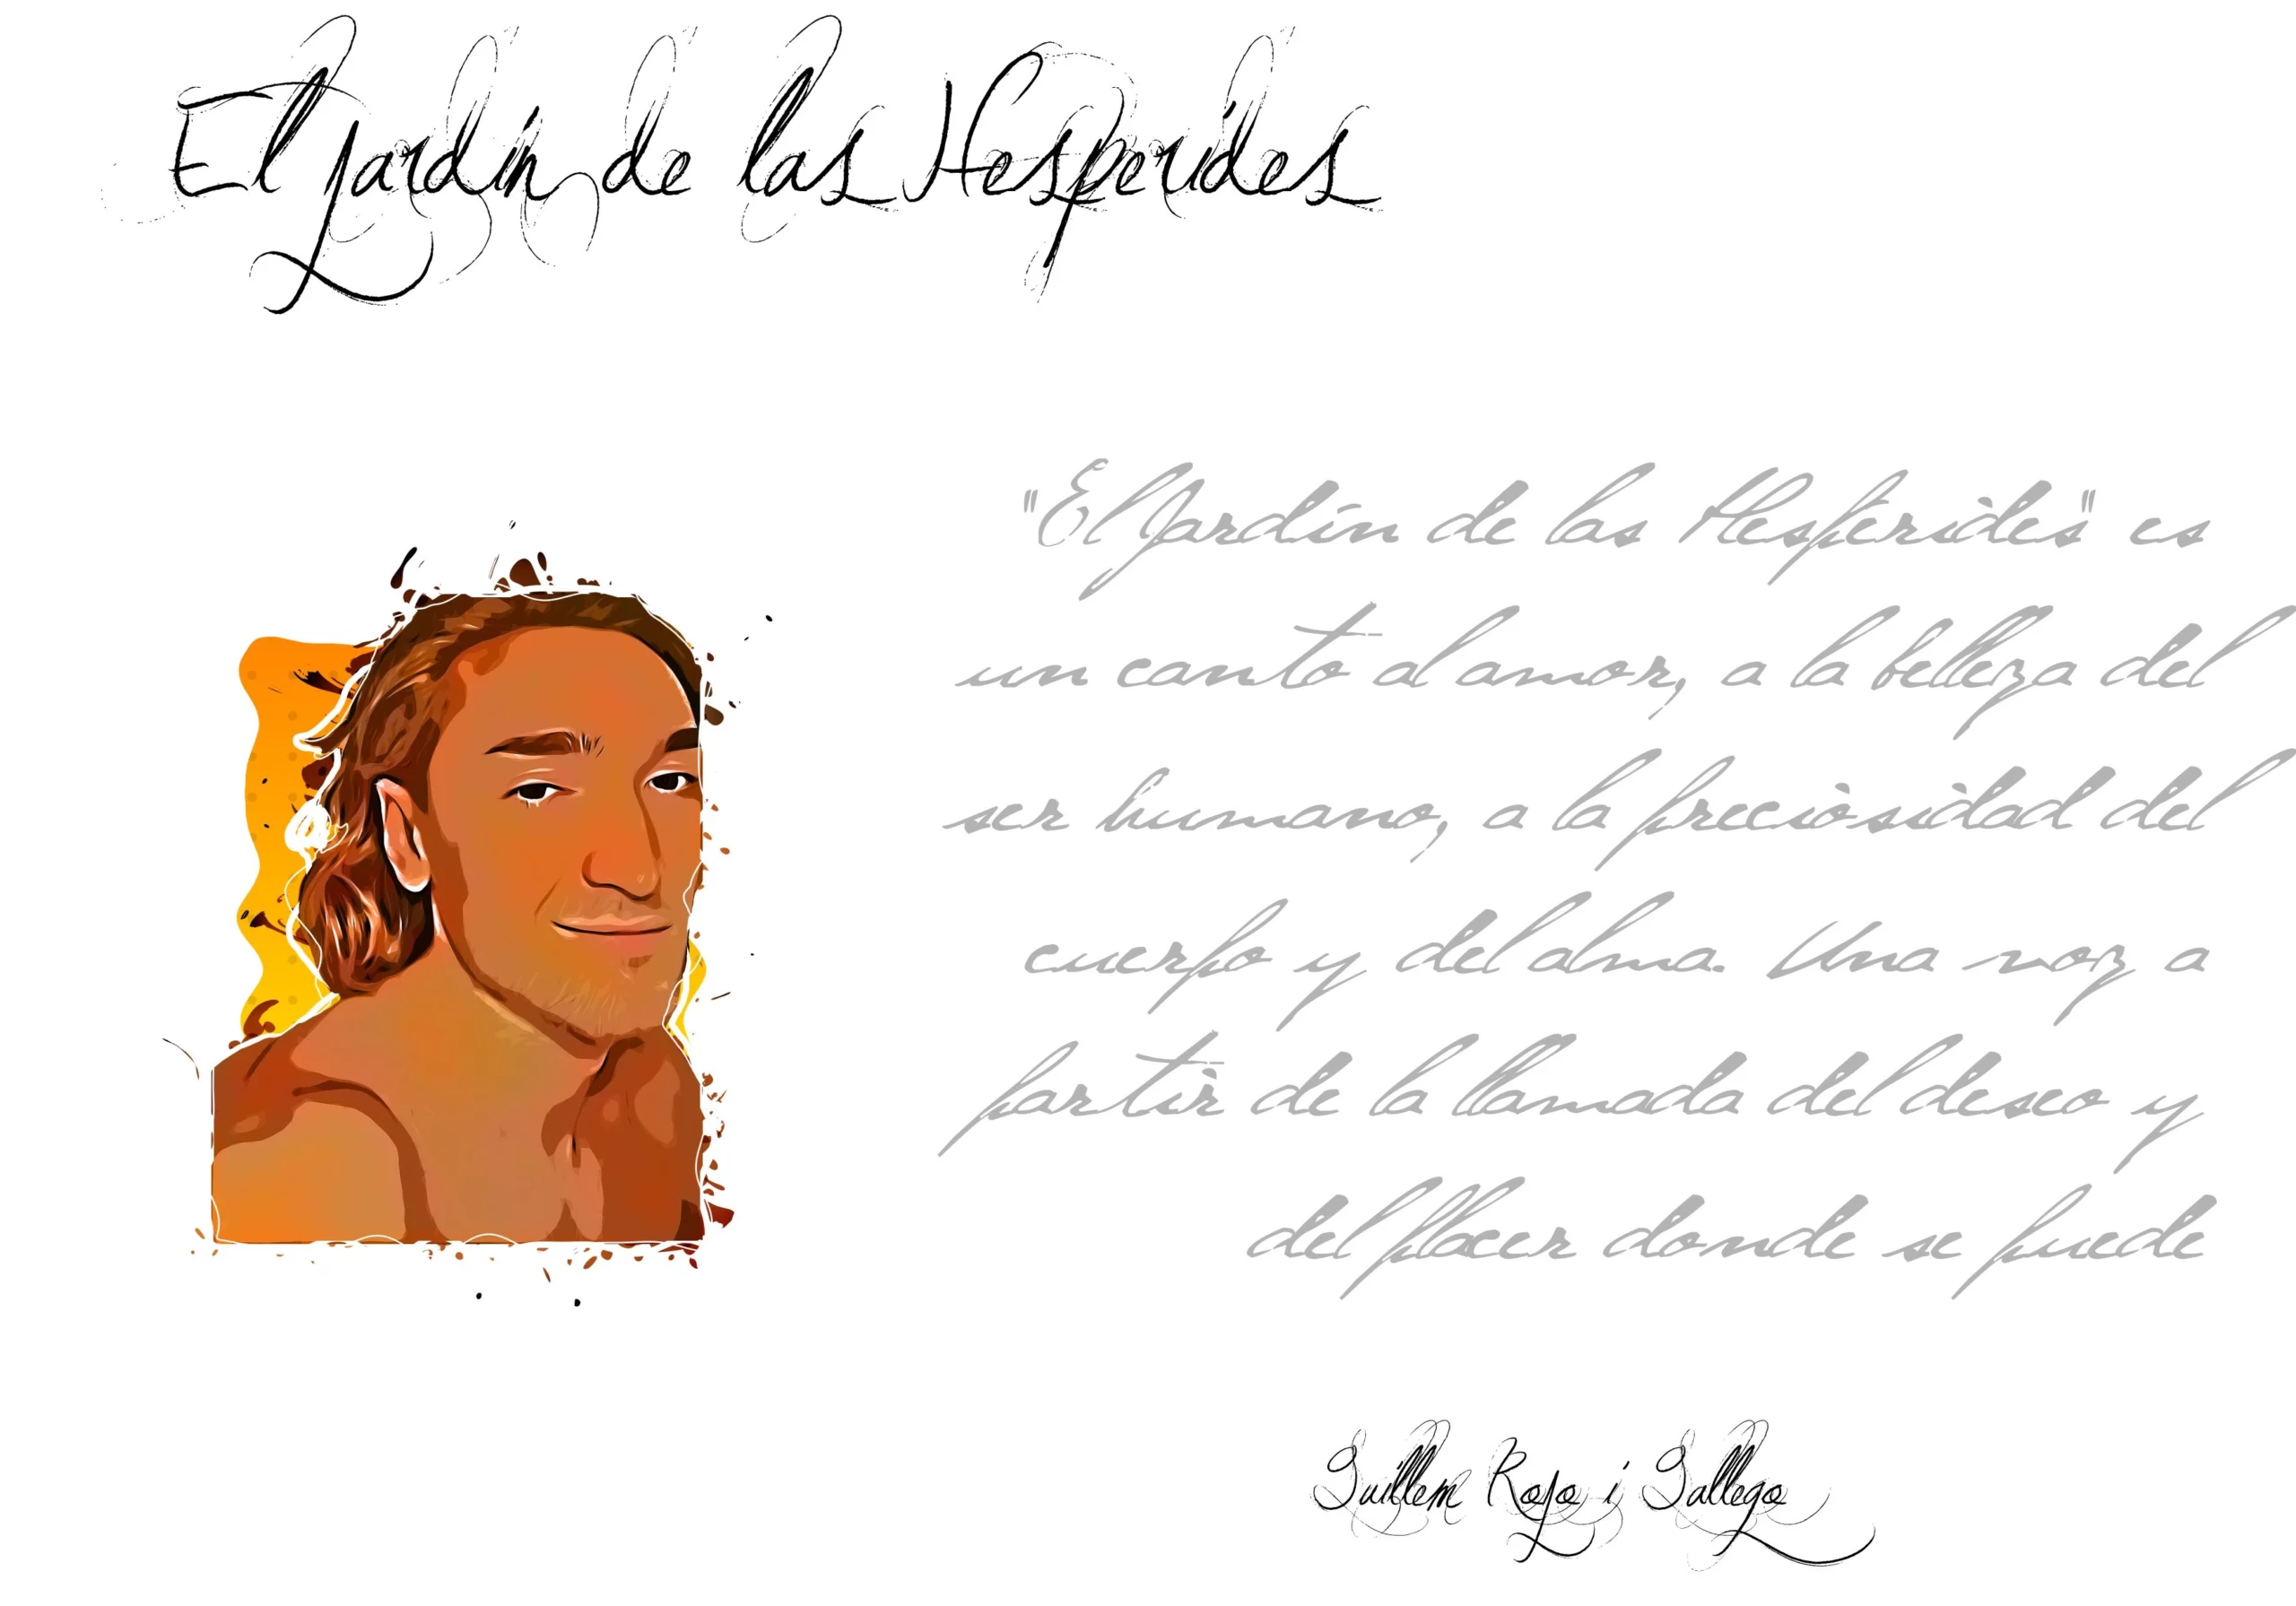 El Jardín de las Hesperides
"El Jardín de las Hesperides" es
un canto al amor, a la belleza del
ser humano, a la preciosidad del
cuerpo y del alma. Una voz a
partir de la llamada del deseo y
del placer donde se puede
Guillem Rojo i Gallego